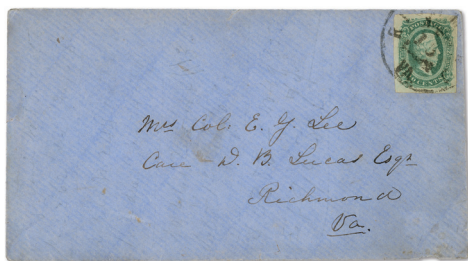 VA.
CENTS
Mrs Col. E. G. Lee
Care D. B. Lucas Esqr
Richmond
Va.